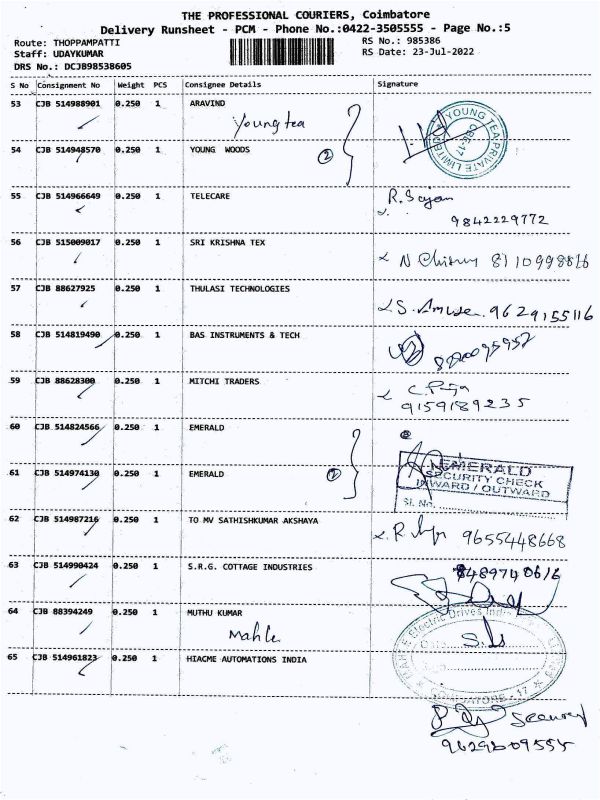 THE PROFESSIONAL COURIERS, Coimbatore
Delivery Runsheet - PCM - Phone No.:0422-3505555 - Page No.:5
Route: THOPPAMPATTI
RS No.: 985386
Staff: UDAYKUMAR
RS Date: 23-Jul-2022
DRS No.: DCJB98538605
S No Consignment No Weight PCS Consignee Details Signature
53 CJB 514988901 0.250 1 ARAVIND
Young tea
YOUNG TEA PRIVATE LIMITED
CBE-17
54 CJB 514948570 0.250 1 YOUNG WOODS
2
55 CJB 514966649 0.250 1 TELECARE
R. Sajan
9842229772
56 CJB 515009017 0.250 1 SRI KRISHNA TEX
N 8110998816
57 CJB 88627925 0.250 1 THULASI TECHNOLOGIES
S. 9629155116
58 CJB 514819490 0.250 1 BAS INSTRUMENTS & TECH
59 CJB 88628300 0.250 1 MITCHI TRADERS
C. Priya
9159189235
60 CJB 514824566 0.250 1 EMERALD
2
61 CJB 514974130 0.250 1 EMERALD
EMERALD
SECURITY CHECK
INWARD / OUTWARD
Sl. No.
62 CJB 514987216 0.250 1 TO MV SATHISHKUMAR AKSHAYA
R 9655448668
63 CJB 514990424 0.250 1 S.R.G. COTTAGE INDUSTRIES
8489740616
64 CJB 88394249 0.250 1 MUTHU KUMAR
Mahle
MAHLE Electric Drives India
COIMBATORE - 17
65 CJB 514961823 0.250 1 HIACME AUTOMATIONS INDIA
9629609555